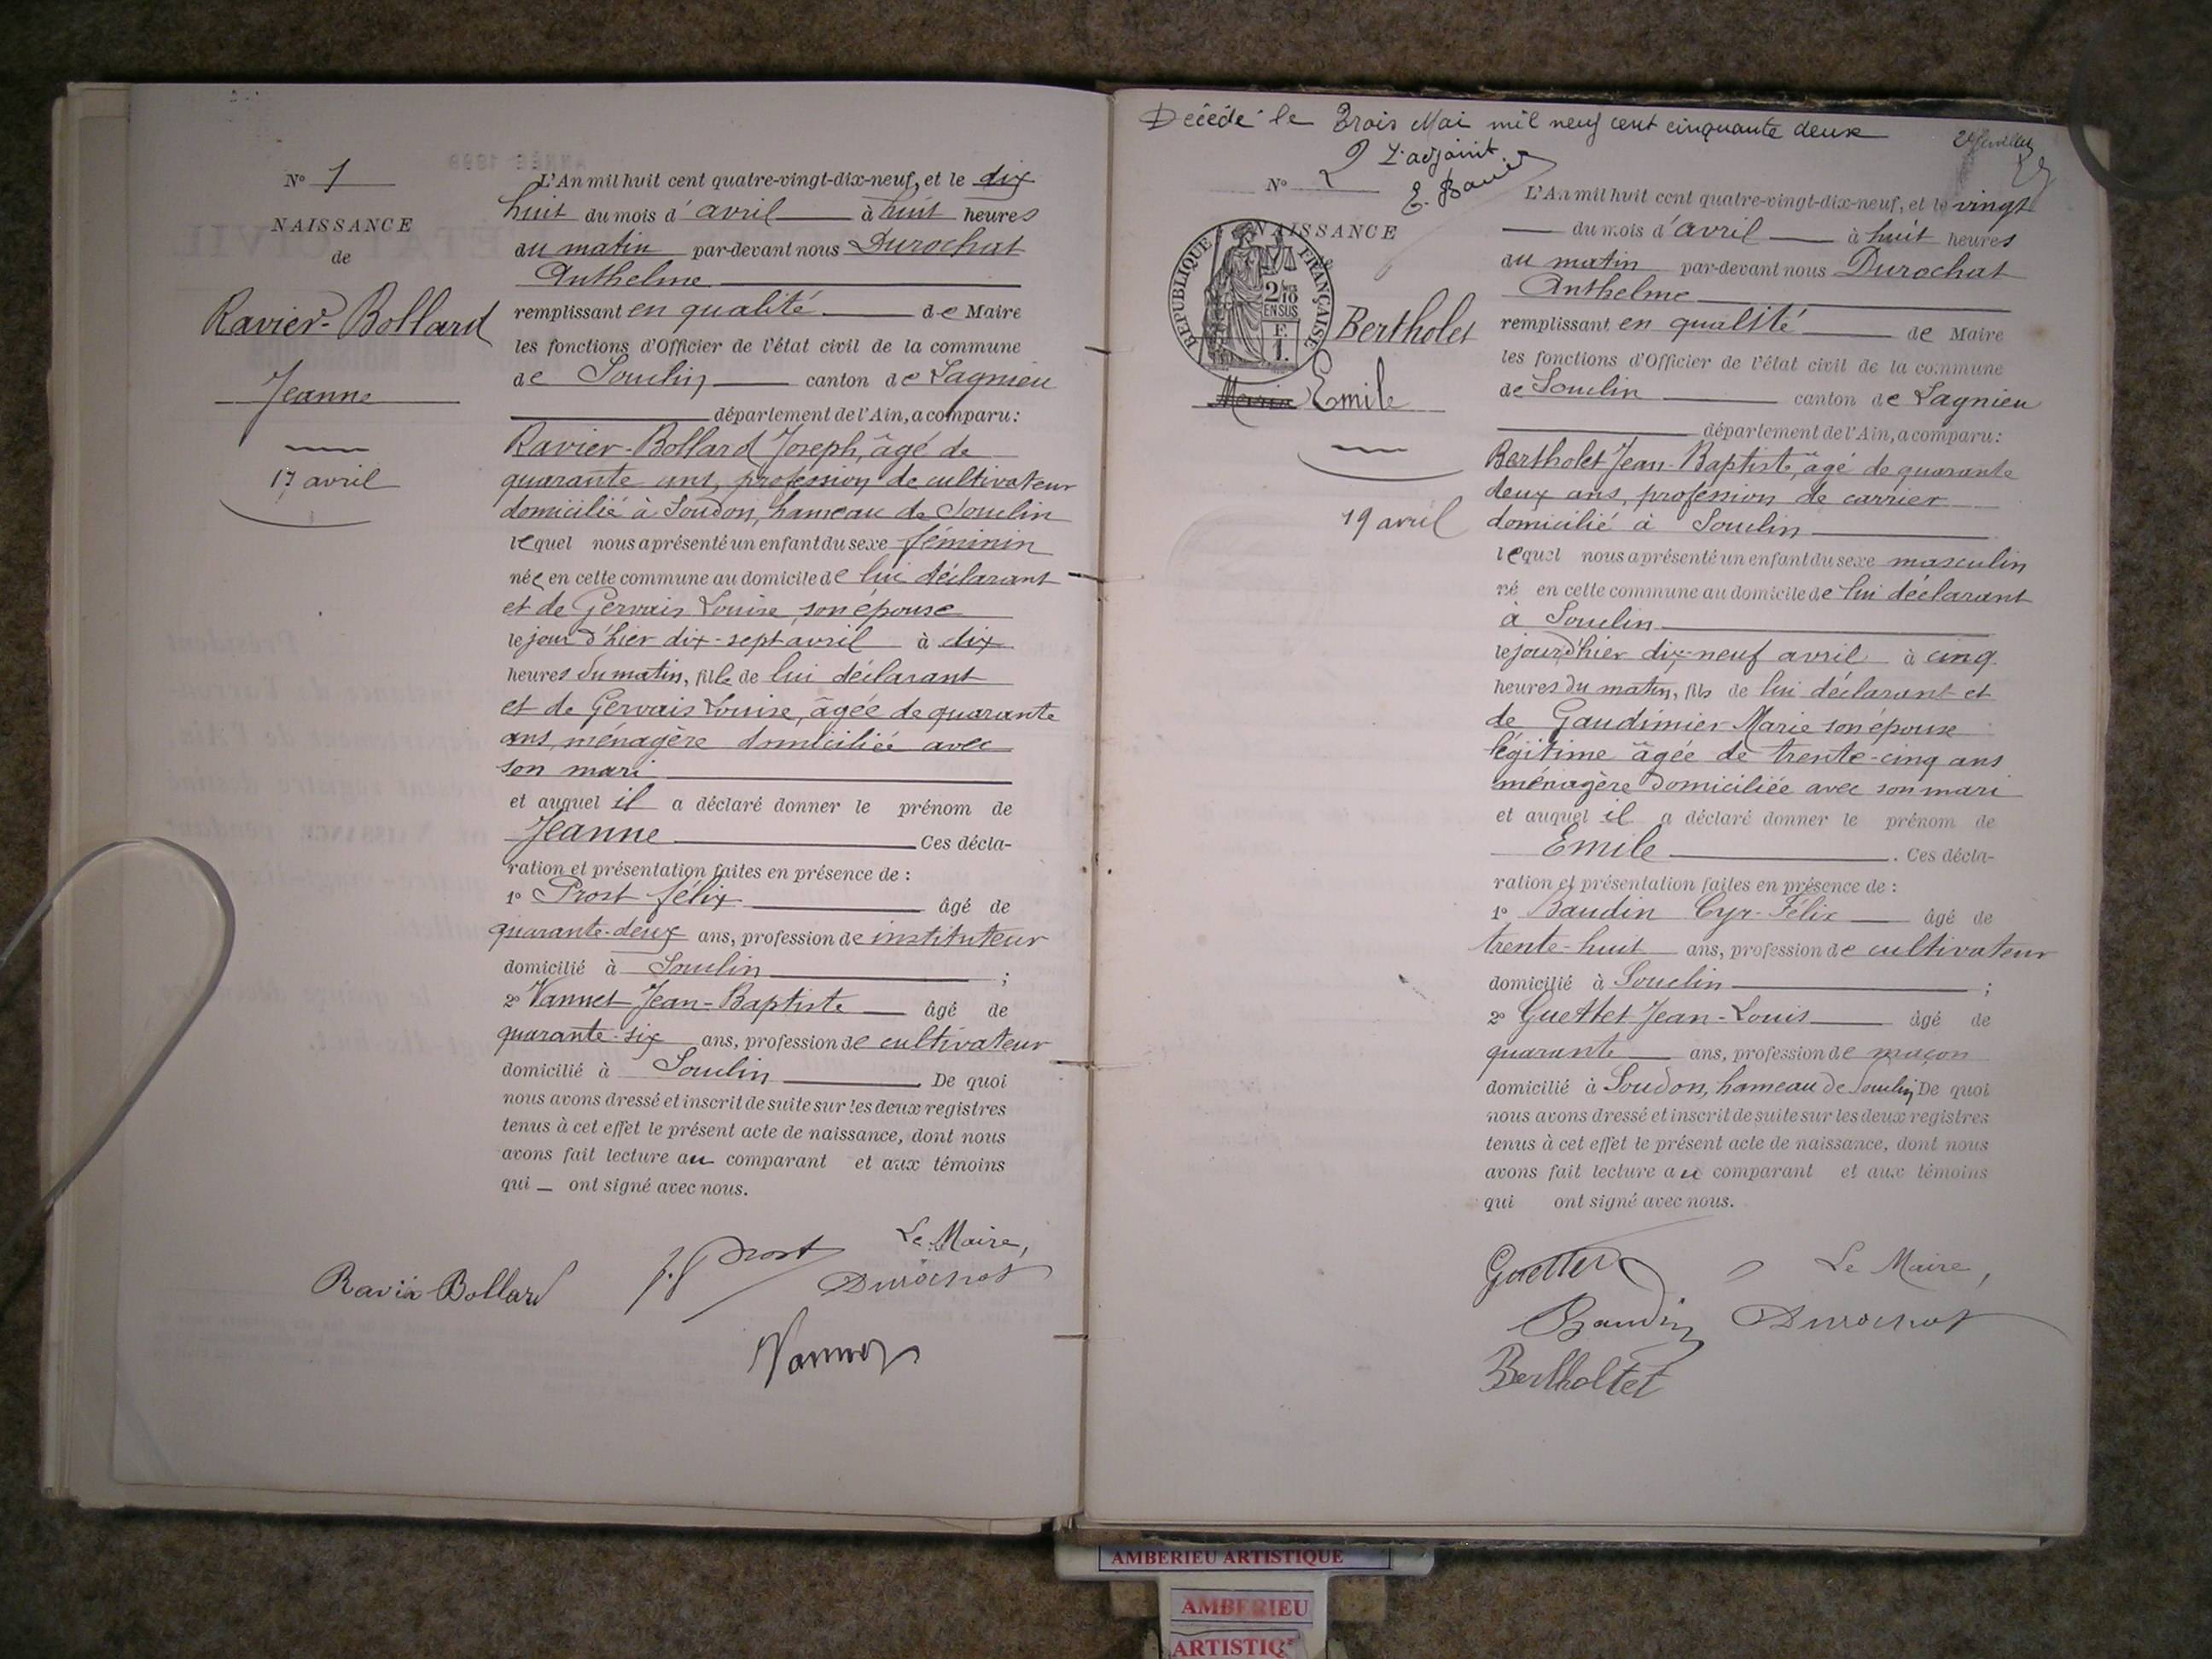 N° 1
NAISSANCE
de
Ravier-Bollard
Jeanne
17 avril
L'An mil huit cent quatre-vingt-dix-neuf, et le dix
huit du mois d'avril à huit heures
du matin par-devant nous Durochat
Anthelme
remplissant en qualité de Maire
les fonctions d'Officier de l'état civil de la commune
de Souclin canton de Lagnieu
département de l'Ain, a comparu :
Ravier-Bollard Joseph, âgé de
quarante ans, profession de cultivateur
domicilié à Soudon, hameau de Souclin
lequel nous a présenté un enfant du sexe féminin
née en cette commune au domicile de lui déclarant
et de Gervais Louise, son épouse
le jour d'hier dix-sept avril à dix
heures du matin, fille de lui déclarant
et de Gervais Louise, âgée de quarante
ans, ménagère domiciliée avec
son mari
et auquel il a déclaré donner le prénom de
Jeanne Ces décla-
ration et présentation faites en présence de :
1° Prost félix âgé de
quarante-deux ans, profession de instituteur
domicilié à Souclin ;
2° Vannet Jean-Baptiste âgé de
quarante-six ans, profession de cultivateur
domicilié à Souclin De quoi
nous avons dressé et inscrit de suite sur les deux registres
tenus à cet effet le présent acte de naissance, dont nous
avons fait lecture au comparant et aux témoins
qui ont signé avec nous.
Le Maire,
Ravier Bollard J. f Prost Durochat
Vannet
Décédé le Trois Mai mil neuf cent cinquante deux
L'adjoint
N° 2
NAISSANCE
RÉPUBLIQUE FRANÇAISE
2/10
EN SUS
F.
1.
Bertholet
Emile
19 avril
L'An mil huit cent quatre-vingt-dix-neuf, et le vingt
du mois d'avril à huit heures
du matin par-devant nous Durochat
Anthelme
remplissant en qualité de Maire
les fonctions d'Officier de l'état civil de la commune
de Souclin canton de Lagnieu
département de l'Ain, a comparu :
Bertholet Jean-Baptiste, âgé de quarante
deux ans, profession de carrier
domicilié à Souclin
lequel nous a présenté un enfant du sexe masculin
né en cette commune au domicile de lui déclarant
à Souclin
le jour d'hier dix-neuf avril à cinq
heures du matin, fils de lui déclarant et
de Gaudimier Marie son épouse
légitime âgée de trente-cinq ans
ménagère domiciliée avec son mari
et auquel il a déclaré donner le prénom de
Emile . Ces décla-
ration et présentation faites en présence de :
1° Baudin Cyr-Félix âgé de
trente-huit ans, profession de cultivateur
domicilié à Souclin ;
2° Guettet Jean-Louis âgé de
quarante ans, profession de maçon
domicilié à Soudon, hameau de Souclin De quoi
nous avons dressé et inscrit de suite sur les deux registres
tenus à cet effet le présent acte de naissance, dont nous
avons fait lecture au comparant et aux témoins
qui ont signé avec nous.
Guettet Le Maire,
Baudin Durochat
Bertholtet
AMBERIEU ARTISTIQUE
AMBERIEU
ARTISTIQ